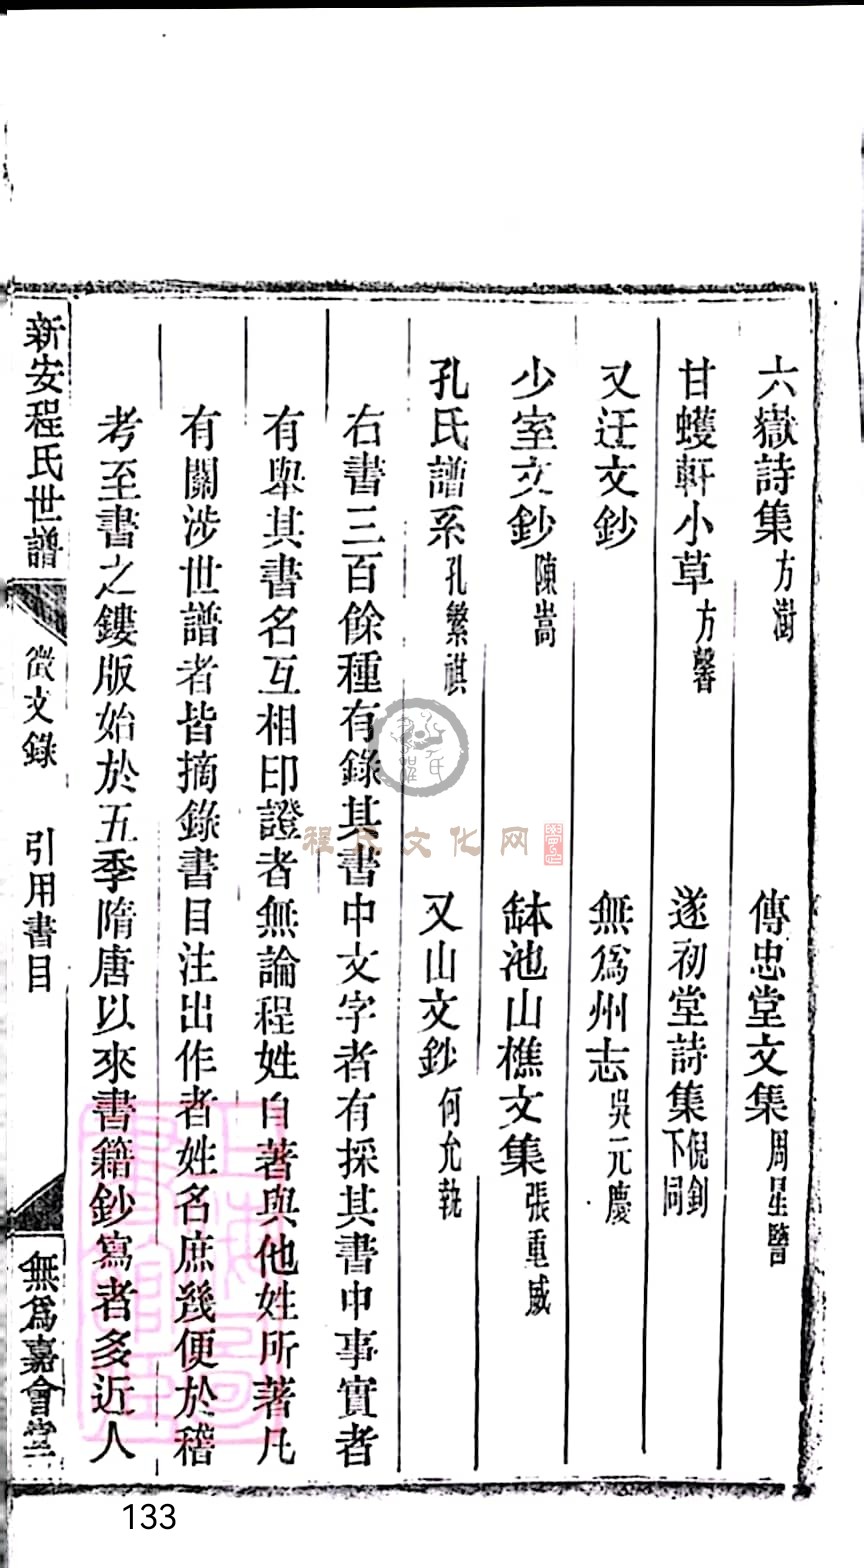 六嶽詩集 方澍 傳忠堂文集 周星譽
甘蠖軒小草 方馨 遂初堂詩集 倪釗 下同
又迂文鈔 無為州志 吳元慶
少室文鈔 陳嵩 缽池山樵文集 張重威
孔氏譜系 孔繁祺 又山文鈔 何允執
右書三百餘種有錄其書中文字者有採其書中事實者
有舉其書名互相印證者無論程姓自著與他姓所著凡
有關涉世譜者皆摘錄書目注出作者姓名庶幾便於稽
考至書之鏤版始於五季隋唐以來書籍鈔寫者多近人
新安程氏世譜 徵文錄 引用書目 無為嘉會堂
程氏文化网
133